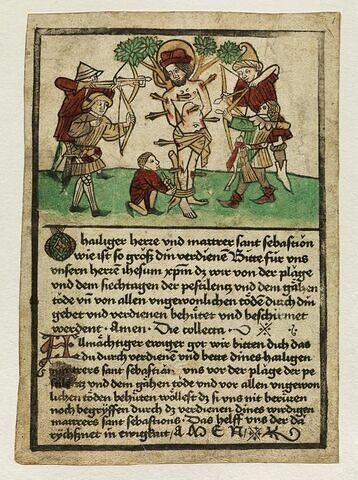 O hailiger herre vnd martrer sant sebastion
wie ist so groß din verdiene Bitte für vns
vnsern herrē ihesum xp̄m dz wir von der plage
vnd dem siechtagen der pestilentz vnd dem gähen
tode vn̄ von allen vngewonlichen töde durch din
gebet vnd verdienen behütet vnd beschirmet
werdent . Amen . Die collecta .
Allmächtiger ewiger got wir bitten dich das
du durch verdienen vnd bette dines hailigen
martrers sant sebastiān vns vor der plage der pe
stilentz vnd dem gähen tode vnd vor allen vngewon
lichen töden behüten wöllest dz si vns mit
noch begryffen durch dz verdienen dines wirdigen
martrers sant sebastions . Das helff vns der da
rychßnet in ewigkait / A M E N